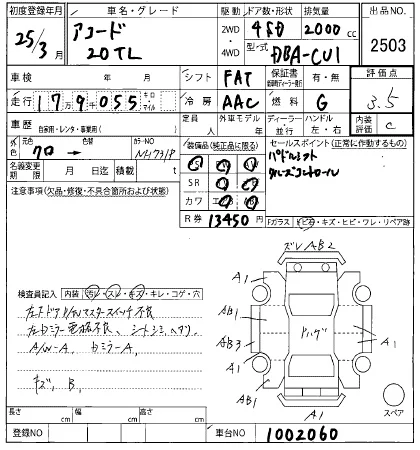 初度登録年月 車名・グレード 駆動 ドア数・形状 排気量 出品NO.
25/3月 アコード 20TL 2WD・4WD 4SD 2000cc 2503
型式 DBA-CU1
車検 年 月 シフト FAT 保証書 有・無 評価点
走行 179055 キロ マイル 冷房 AAC 燃料 G 3.5
車歴 自家用・レンタ・事業用( ) 定員 人 外車モデル 年 ディーラー 並行 ハンドル 左・右 内装評価 C
外色 元色 クロ → 色替 カラーNO NH731P 装備品(純正品に限る) セールスポイント(正常に作動するもの)
パドルシフト
クルーズコントロール
名義変更期限 月 日迄 積載 t SR
カワ
R券 13450円
注意事項(欠品・修復・不具合箇所および状態)
Fガラス トビ石・キズ・ヒビ・ワレ・リペア跡
ズレAB2
A1 A1
AB1
AB3 A1
A1 A1
AB1 A1
スペア
検査員記入 内装 汚レ・スレ・キズ・キレ・コゲ・穴
左Fドア P/Wマスタースイッチ不良
A/W-A、
キズ、B、
長さ cm 幅 cm 高さ cm
登録NO 車台NO 1002060